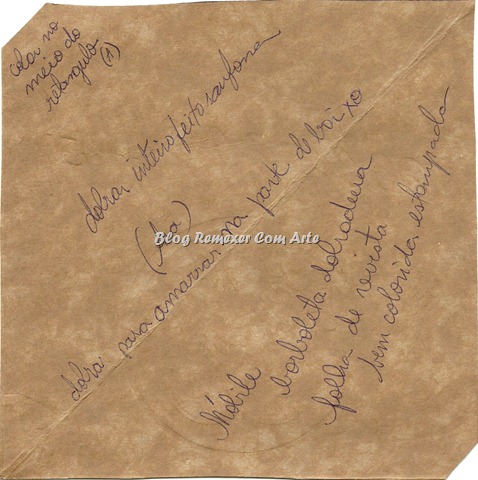 colar no
meio do
retangulo
(1)
dobrar inteiro feito sanfona
(asa)
dobrar para amarrar na parte de baixo
Móbile
borboleta dobradura
folha de revista
bem colorida, estampada
Blog Remexer Com Arte